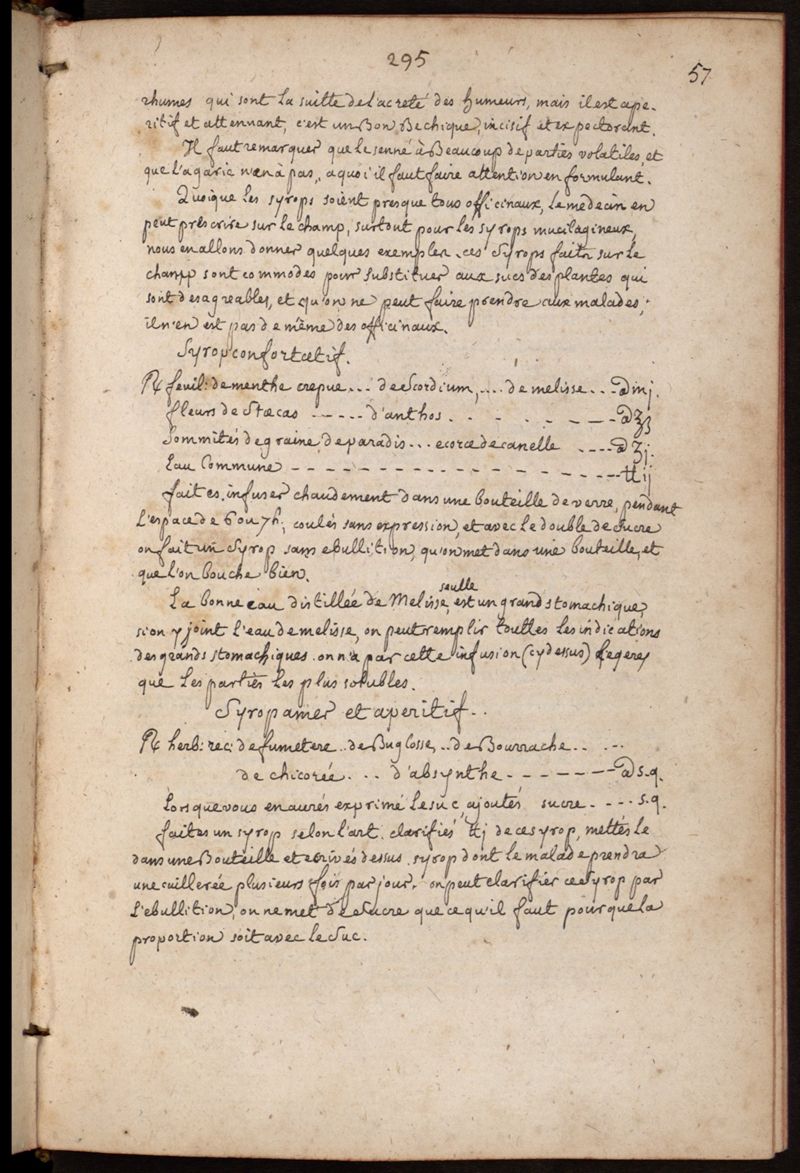 295
57
rhumes qui sont la suitte de l'acreté des humeurs, mais il est ape-
ritif et attenuant, c'est un Bon Bechique, incisif et expectorant.
Il faut remarquer que le senné à Beaucoup de parties volatiles, et
que l'agaric n'en à pas, a quoi il faut faire attention en formulant.
Quoique les syrops soient presque tous officinaux, le medecin en
peut préscrire sur le champ, surtout pour les syrops mucilagineux,
nous en allons donner quelques exemples. ces syrops faits sur le
champ sont commodes pour substituer aux sucs des plantes qui
sont desagreables, et qu'on ne peut faire prendre aux malades;
il n'en est pas de même des officinaux.
Syrop confortatif.
℞ feuil: de menthe crepue... de Scordium,.... de melisse... a͠a mj.
fleurs de Stœcas ------ d'anthos. . - . - . - - - a͠a ʒʒ
Sommités de graine de paradis... ecorce de canelle ---- a͠a ʒj.
Eau Commune - - - - - - - - - - - - - - - - ℔ij
faites infuser chaudement dans une bouteille de verre, pendant
l'espace de 6 ou 7 h; coulés sans expression, et avec le double de sucre
on fait un Syrop sans ebullition, qu'on met dans une bouteille, et
que l'on bouche bien.
La bonne eau distillée de Melisse seulle, est un grand stomachique,
si on y joint l'eau de melisse, on peut remplir touttes les indications
des grands stomachiques. on n'a par cette infusion (cy dessus) legere,
que les parties les plus solubles.
Syrop amer et aperitif..
℞ herb: rec: de fumetere.. de Buglosse,.. de Bourrache.. ...
de chicorée... d'absynthe - - - - - - - a͠a s.q.
Lorsque vous en aurés exprimé le suc, ajoutés sucre. - - - s.q.
faites un syrop selon l'art. clarifiés ℔j de ce syrop, mettés le
dans une Bouteille et ecrivés dessus. syrop dont le malade prendra
une cuillerée plusieurs fois par jour. on peut clarifier ce Syrop par
l'ebullition, on ne met de Sucre que ce qu'il faut pour que la
proportion soit avec le Suc.